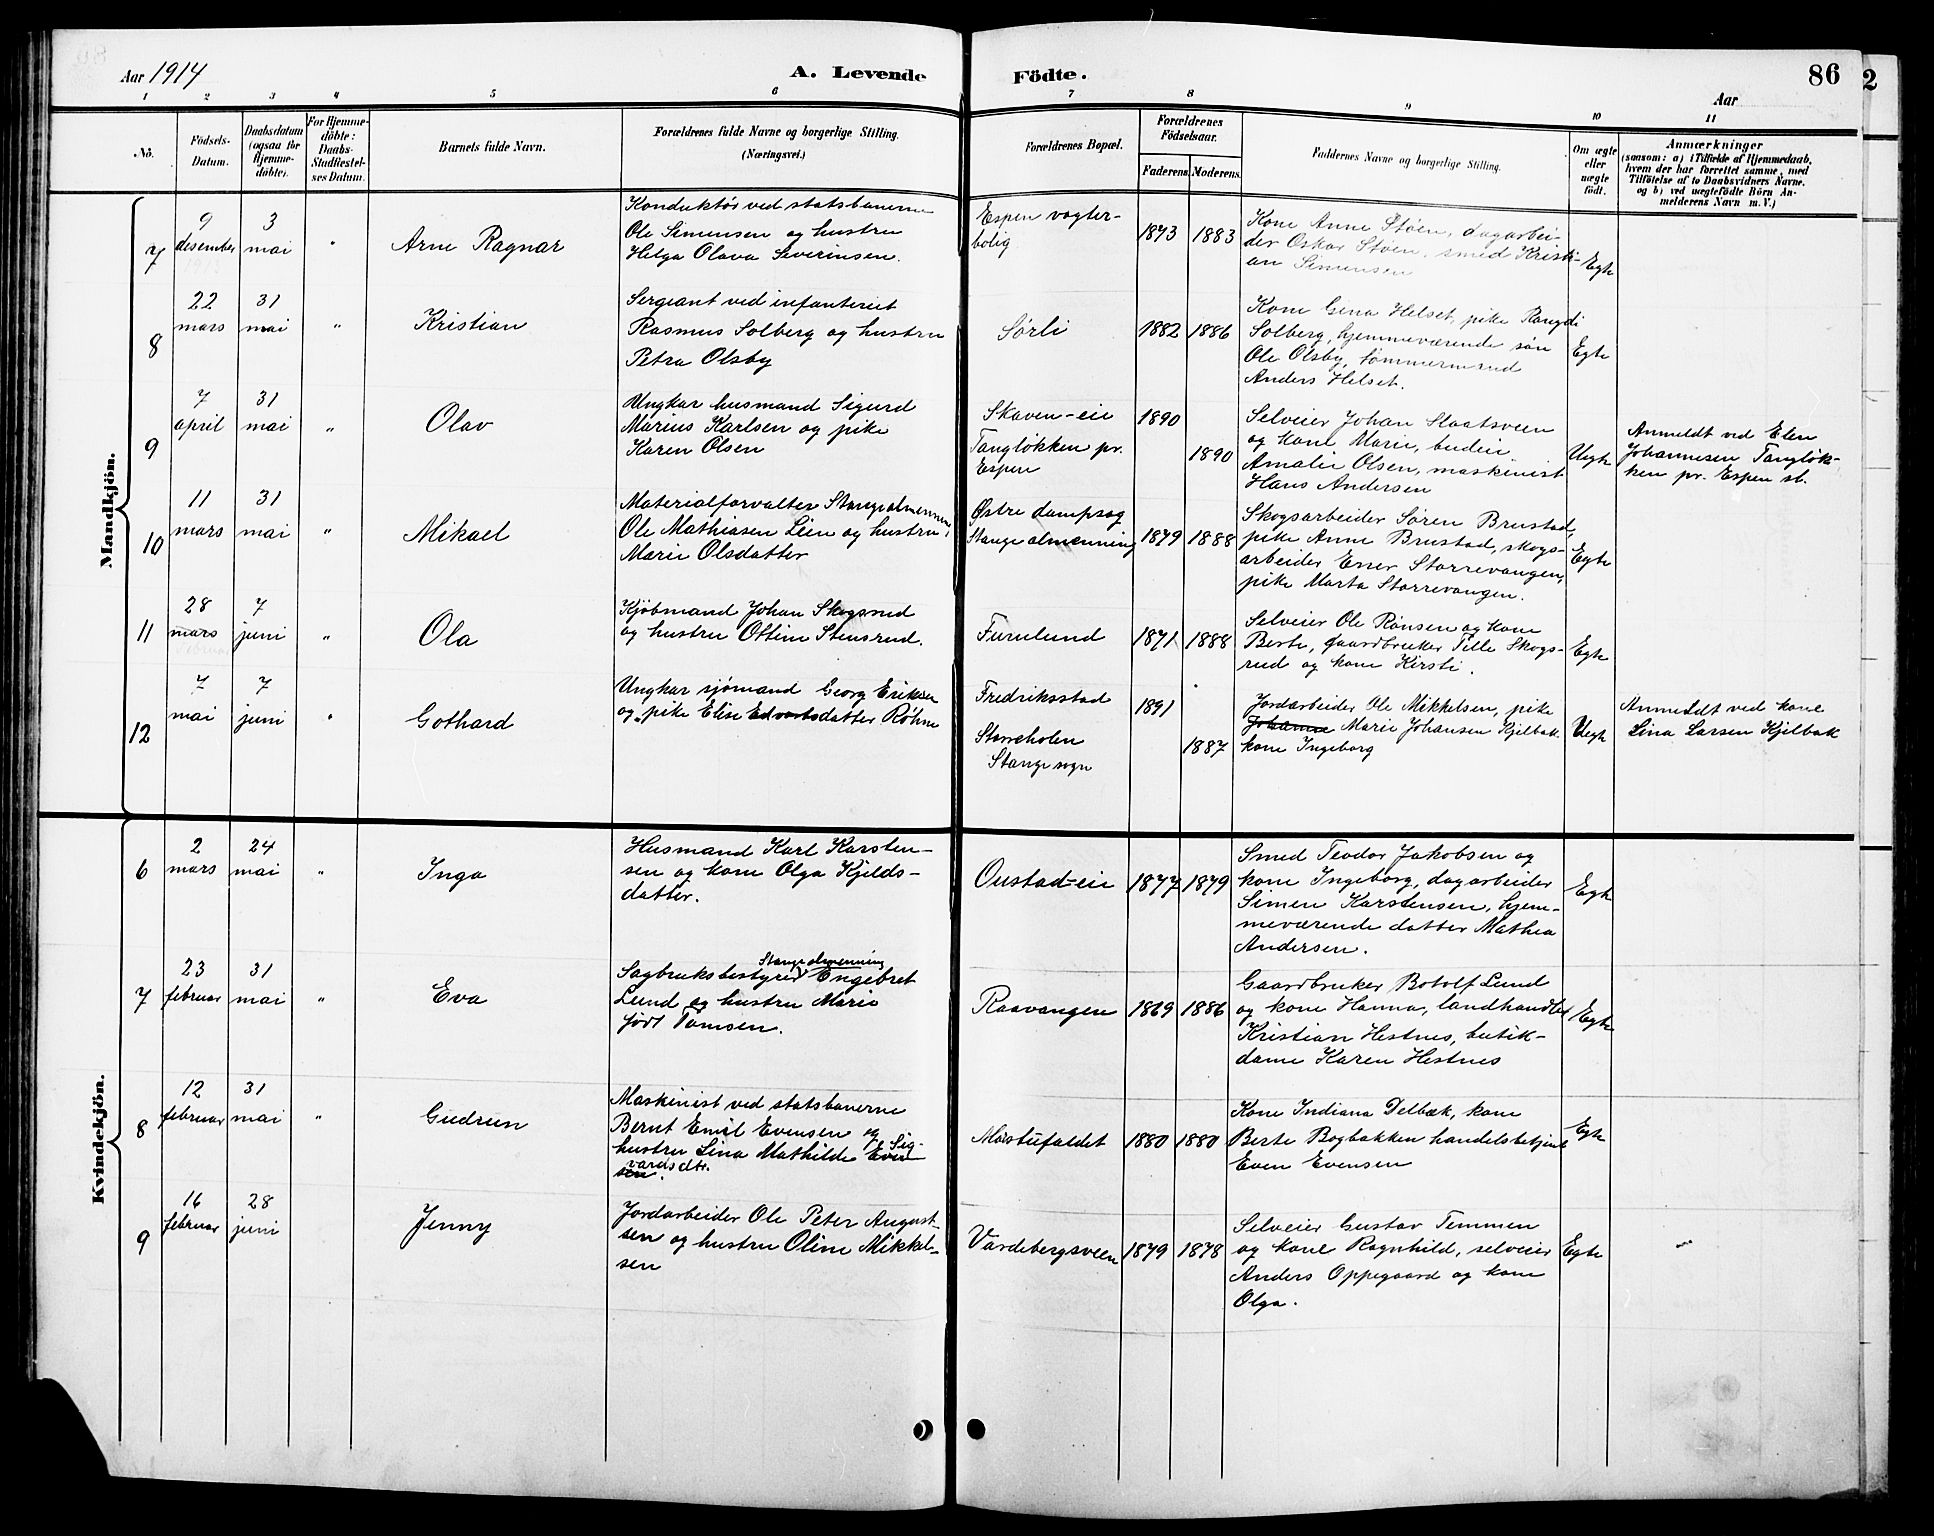 Aar 1914
A. Levende Födte.
86
Aar
1 2 3 4 5 6 7 8 9 10 11
No.
Födsels-
Datum.
Daabsdatum
(ogsaa for
Hjemme-
døbte).
For Hjemme-
döbte:
Daabs-
Stadfæstel-
ses Datum.
Barnets fulde Navn.
Forældrenes fulde Navne og borgerlige Stilling.
(Næringsvei.)
Forældrenes Bopæl.
Forældrenes
Födselsaar.
Faderens. Moderens.
Faddernes Navne og borgerlige Stilling.
Om ægte
eller
uægte
født.
Anmærkninger
(saasom: a) i Tilfælde af Hjemmedaab,
hvem der har forrettet samme, med
Tilföielse af to Daabsvidners Navne.
og b) ved uægtefödte Börn An-
melderens Navn m. V.)
Mandkjön.
7
9
desember
3
mai
"
Arne Ragnar
Konduktør ved statsbanerne
Ole Simensen og hustru
Helga Olava Severinsen.
Espen vogter-
bolig
1873 1883
Kone Anne Støen, dagarbei-
der Oskar Støen, smed Kristi-
an Simensen
Egte
8
22
mars
31
mai
"
Kristian
Sergeant ved infanteriet
Rasmus Solberg og hustru
Petra Olsby
Sørli
1882 1886
Kone Gina Helset, pike Rangdi
Solberg, hjemmeværende søn
Ole Olsby, tømmermand
Anders Helset.
Egte
9
7
april
31
mai
"
Olav
Ungkar husmand Sigurd
Marius Karlsen og pike
Karen Olsen
Skaven-eie
Tangløkken pr.
Espen
1890
1890
Selveier Johan Staatsveen
og kone Marie, budeie
Amalie Olsen, maskinist
Hans Andersen
Uegte
Anmeldt ved Elen
Johannesen Tangløk-
ken pr. Espen st.
10
11
mars
31
mai
"
Mikael
Materialforvalter Stange almenning
Ole Mathiasen Lien og hustru
Marie Olsdatter
Østre dampsag
Stange almenning
1879 1888
Skogsarbeider Søren Brustad,
pike Anne Brustad, skogs-
arbeider Enner Storrevangen,
pike Marta Storrevangen.
Egte
11
28
mars
7
juni
"
Ola
Kjøbmand Johan Skogsrud
og hustru Ottine Stensrud.
Furulund
1871 1888
Selveier Ole Rønsen og kone
Berte, gaardbruker Tille Skogs-
rud og kone Kirsti.
Egte
12
7
mai
7
juni
"
Gothard
Ungkar sjømand Georg Eriksen
og pike Elise Edvartsdatter Røhne
Fredriksstad
Storreholen
Stange sogn
1891
1887
Jordarbeider Ole Mikkelsen, pike
Johanne Marie Johansen Kjelbak
kone Ingeborg
Uegte
Anmeldt ved kone
Lina Larsen Kjelbak
Kvindekjön.
6
2
mars
24
mai
"
Inga
Husmand Karl Karsten-
sen og kone Olga Kjelds-
datter.
Oustad-eie
1877 1879
Smed Teodor Jakobsen og
kone Ingeborg, dagarbeider
Simen Karstensen, hjem-
meværende datter Mathea
Andersen.
Egte
7
23
februar
31
mai
"
Eva
Stange almenning
Sagbruksbestyrer Engebret
Lund og hustru Marie
født Tomsen.
Raavangen
1869 1886
Gaardbruker Botolf Lund
og kone Hanna, landhandler
Kristian Hestnes, butik-
dame Karen Hestnes
Egte
8
12
februar
31
mai
"
Gudrun
Maskinist ved statsbanerne
Bernt Emil Evensen og
hustru Lina Mathilde Sig-
vardsdtr.
Mostufaldet
1880 1880
Kone Indiana Delbæk, kone
Berte Bogbakken handelsbetjent
Even Evensen
Egte
9
16
februar
28
juni
Jenny
Jordarbeider Ole Peter August-
sen og hustru Oline Mikkel-
sen
Vardebergsveen
1879 1878
Selveier Gustav Temmen
og kone Ragnhild, selveier
Anders Oppegaard og kone
Olga.
Egte